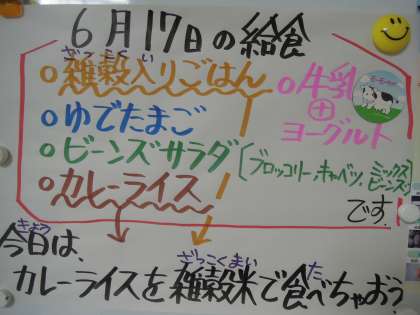 6月17日の給食
ざっこくい
○雑穀入りごはん
○牛乳
+
ヨーグルト
○ゆでたまご
○ビーンズサラダ
(ブロッコリー,キャベツ,ミックスビーンズ)
○カレーライス
です。
きょう
今日は、
ざっこくまい
た
カレーライスを雑穀米で食べちゃおう